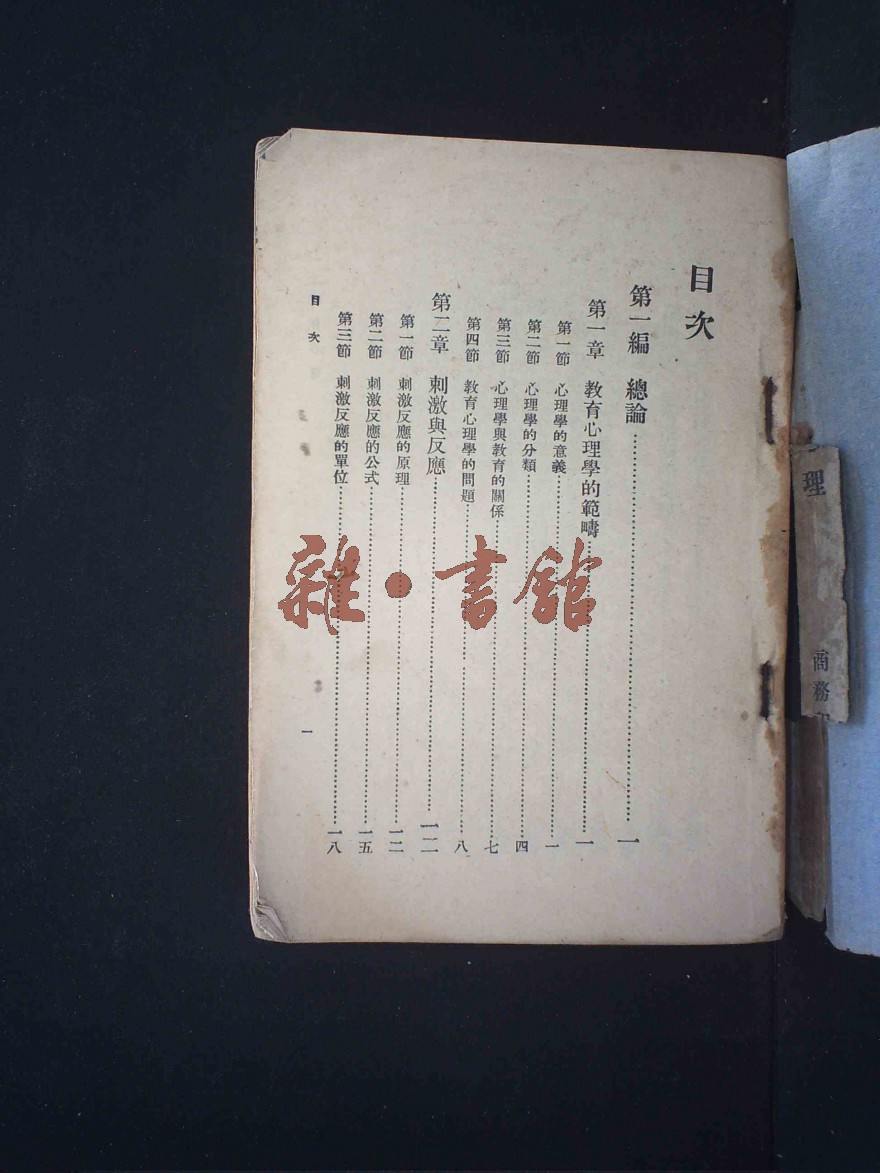 目次
第一編　總論……一
第一章　教育心理學的範疇……一
第一節　心理學的意義……一
第二節　心理學的分類……四
第三節　心理學與教育的關係……七
第四節　教育心理學的問題……八
第二章　刺激與反應……一二
第一節　刺激反應的原理……一二
第二節　刺激反應的公式……一五
第三節　刺激反應的單位……一八
目次
一
雜·書館
理
商務